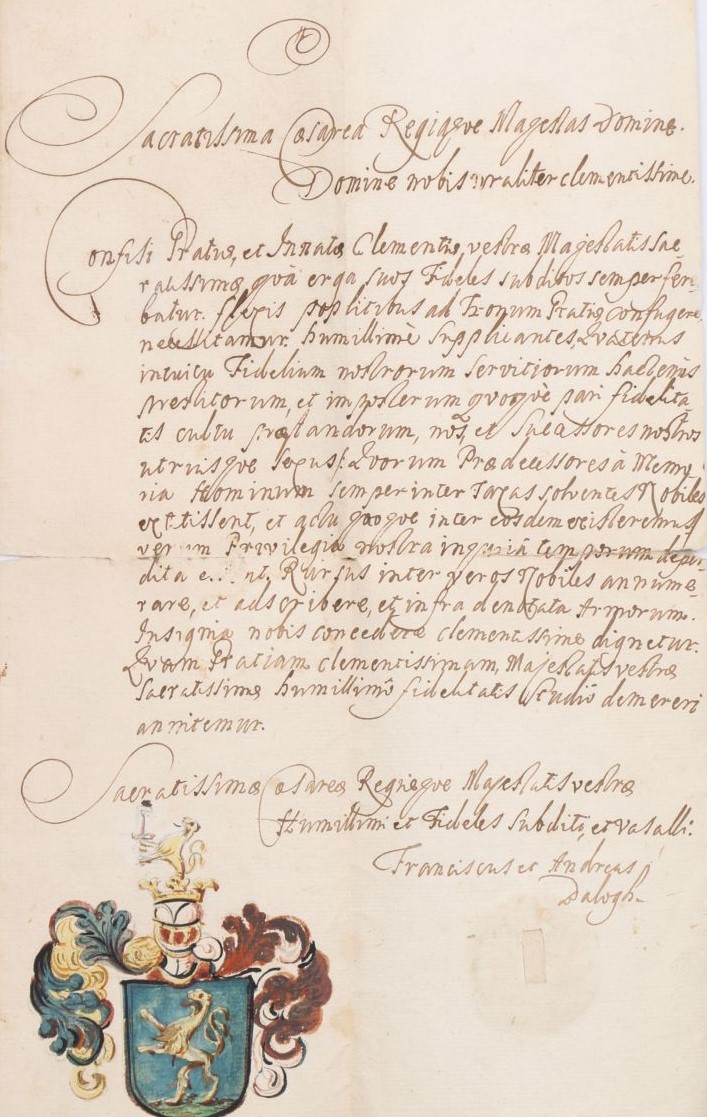 Sacratissima Cæsarea Regiaqve Majestas Domine.
Domine nobis n̄raliter clementissime.
Confisi Gratiæ, et Innatæ Clementiæ, vestræ Majestatis Sac
ratissimæ, qvâ erga suos Fideles subditos semper fere
batur. flexis poplitibus ad Tronum Gratiæ confugere
necessitamur. humillimè supplicantes, Qvatenus
intuitu Fidelium nostrorum servitiorum hactenus
præstitorum, et imposterum qvoqvè pari fidelita
tis cultu præstandorum, nos, et Successores nostros
utriusqve sexus: Qvorum Prædecessores à Memo
ria Hominum semper inter Taxas solventes Nobiles
extitissent, et actu qvoqve inter eosdem existeremus
verum Privilegia nostra injuriâ temporum deper
dita Rursus inter veros Nobiles annume
rare, et adscribere, et infra denotata Armorum.
Insignia nobis concedere clementissime dignetur.
Qvam Gratiam clementissimam, Majestatis vestræ
Sacratissimæ humillimo fidelitatis studio demereri
annitemur.
Sacratissimæ Cæsareæ Regiæqve Majestatis vestræ
Humillimi et Fideles Subditi, et Vasalli.
Franciscus et Andreas
Balogh